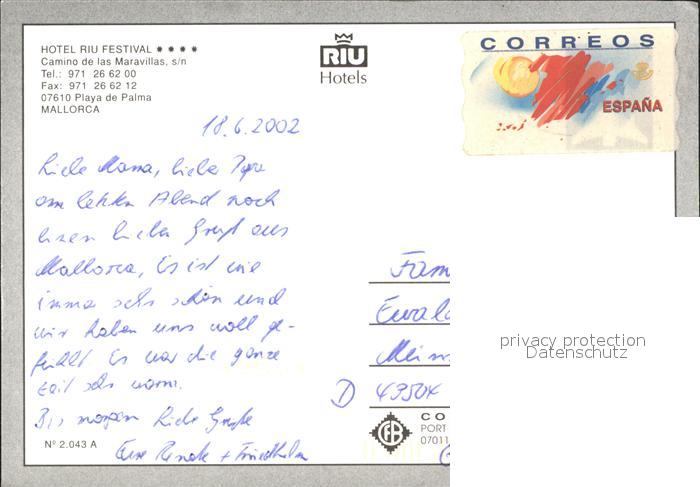 HOTEL RIU FESTIVAL ★★★★
Camino de las Maravillas, s/n
Tel.: 971 26 62 00
Fax: 971 26 62 12
07610 Playa de Palma
MALLORCA
RIU
Hotels
CORREOS
ESPAÑA
18.6.2002
Liebe Mama, lieber Papa
am letzten Abend noch
einen lieben Gruß aus
Mallorca, Es ist wie
immer sehr schön und
wir haben uns wohl ge-
fühlt. Es war die ganze
Zeit sehr warm.
Bis morgen Liebe Grüße
Eure Renate + Friedhelm
Nº 2.043 A
Fam
Ewald
Mein
D 4350
privacy protection
Datenschutz
CO
PORT
07011